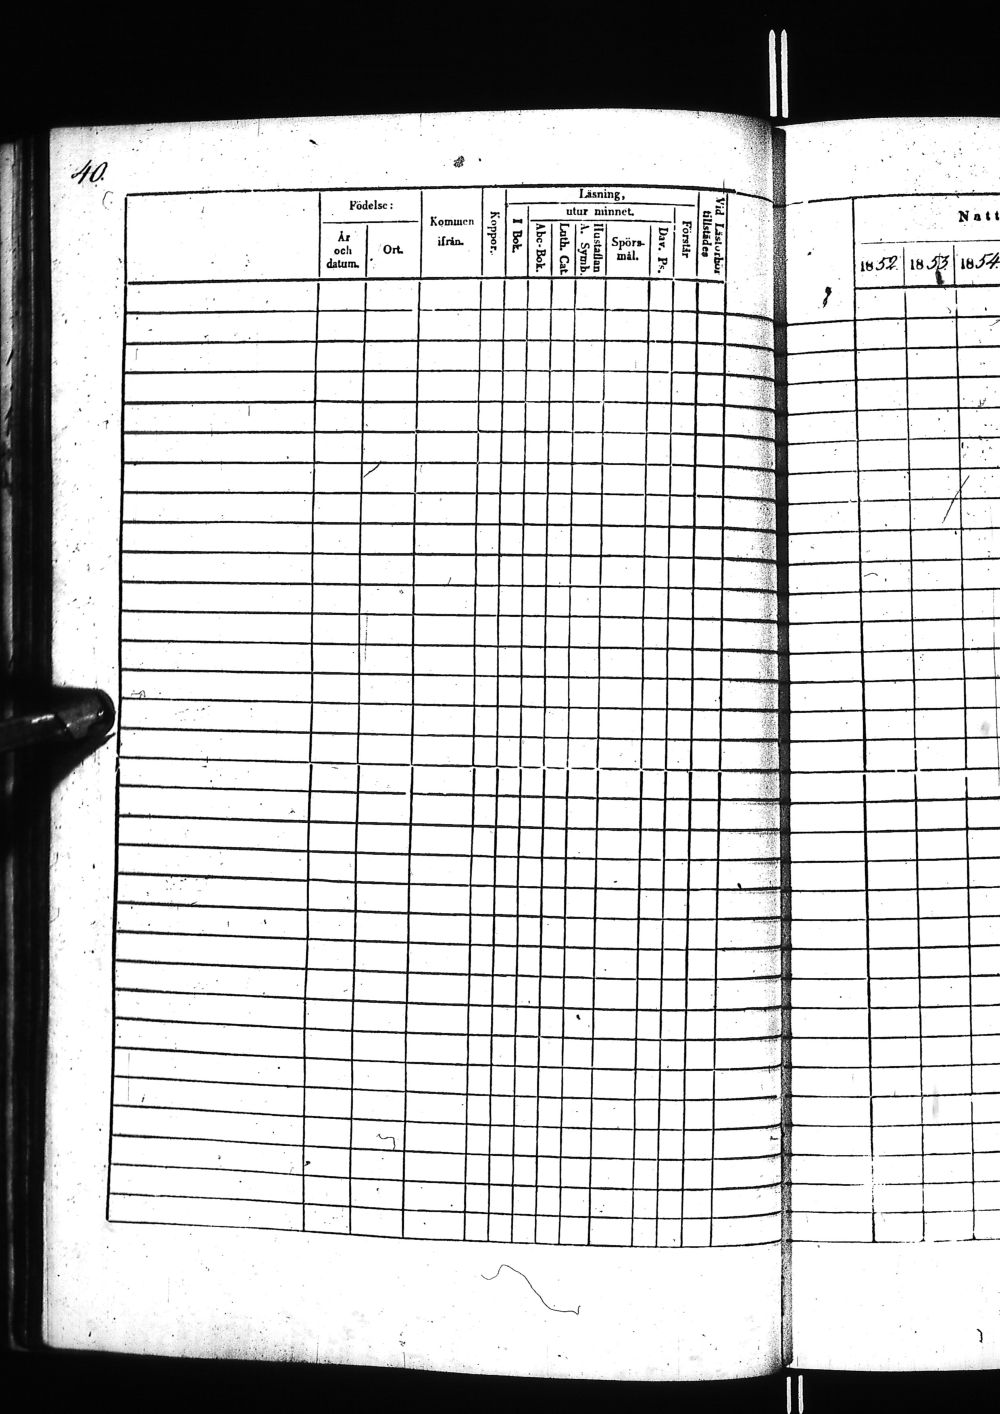 40.
Födelse:
År
och
datum.
Ort.
Kommen
ifrån.
Koppor.
Läsning,
I Bok.
utur minnet.
Abc-Bok.
Luth. Cat.
Hustaflan
A. Symb.
Spörs-
mål.
Dav. Ps.
Förstår
Vid Läsförhör
tillstädes
Natt
1852. 1853. 1854.